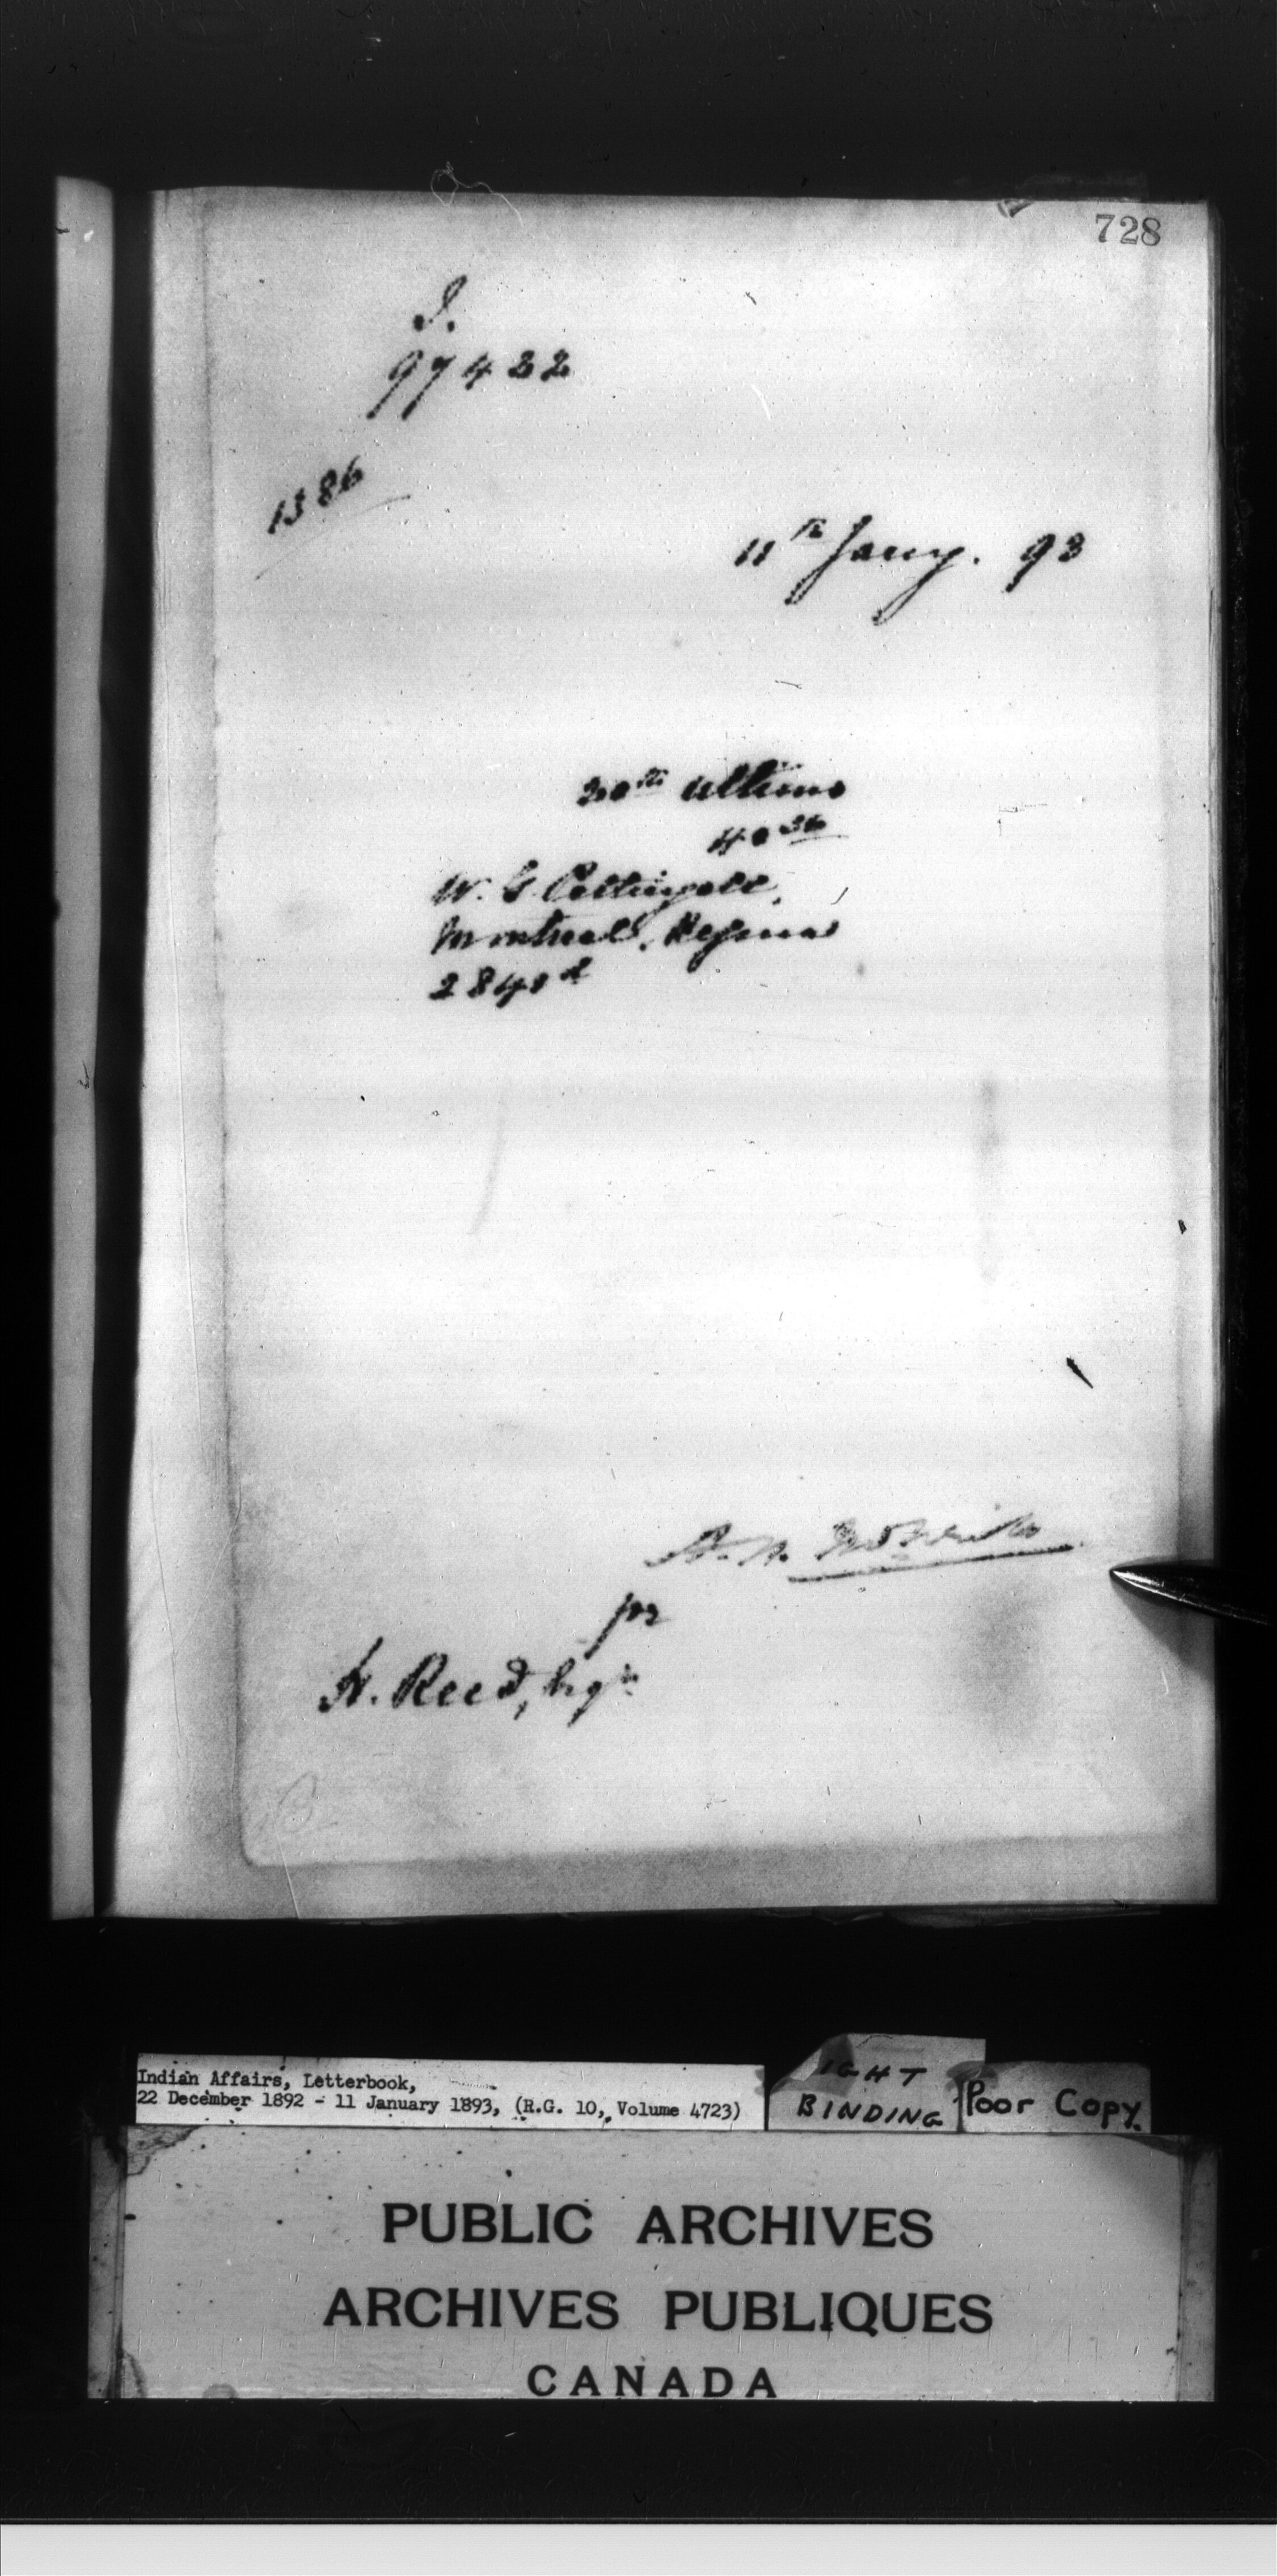 728
97422
1386
11th Jany. 93
20th ultimo
40 36
W. G. Pettingell,
Montreal, Regina
2840
pr
H. Reed, Esqre
Indian Affairs, Letterbook,
22 December 1892 - 11 January 1893, (R.G. 10, Volume 4723)
IGHT
BINDING
Poor Copy.
PUBLIC ARCHIVES
ARCHIVES PUBLIQUES
CANADA